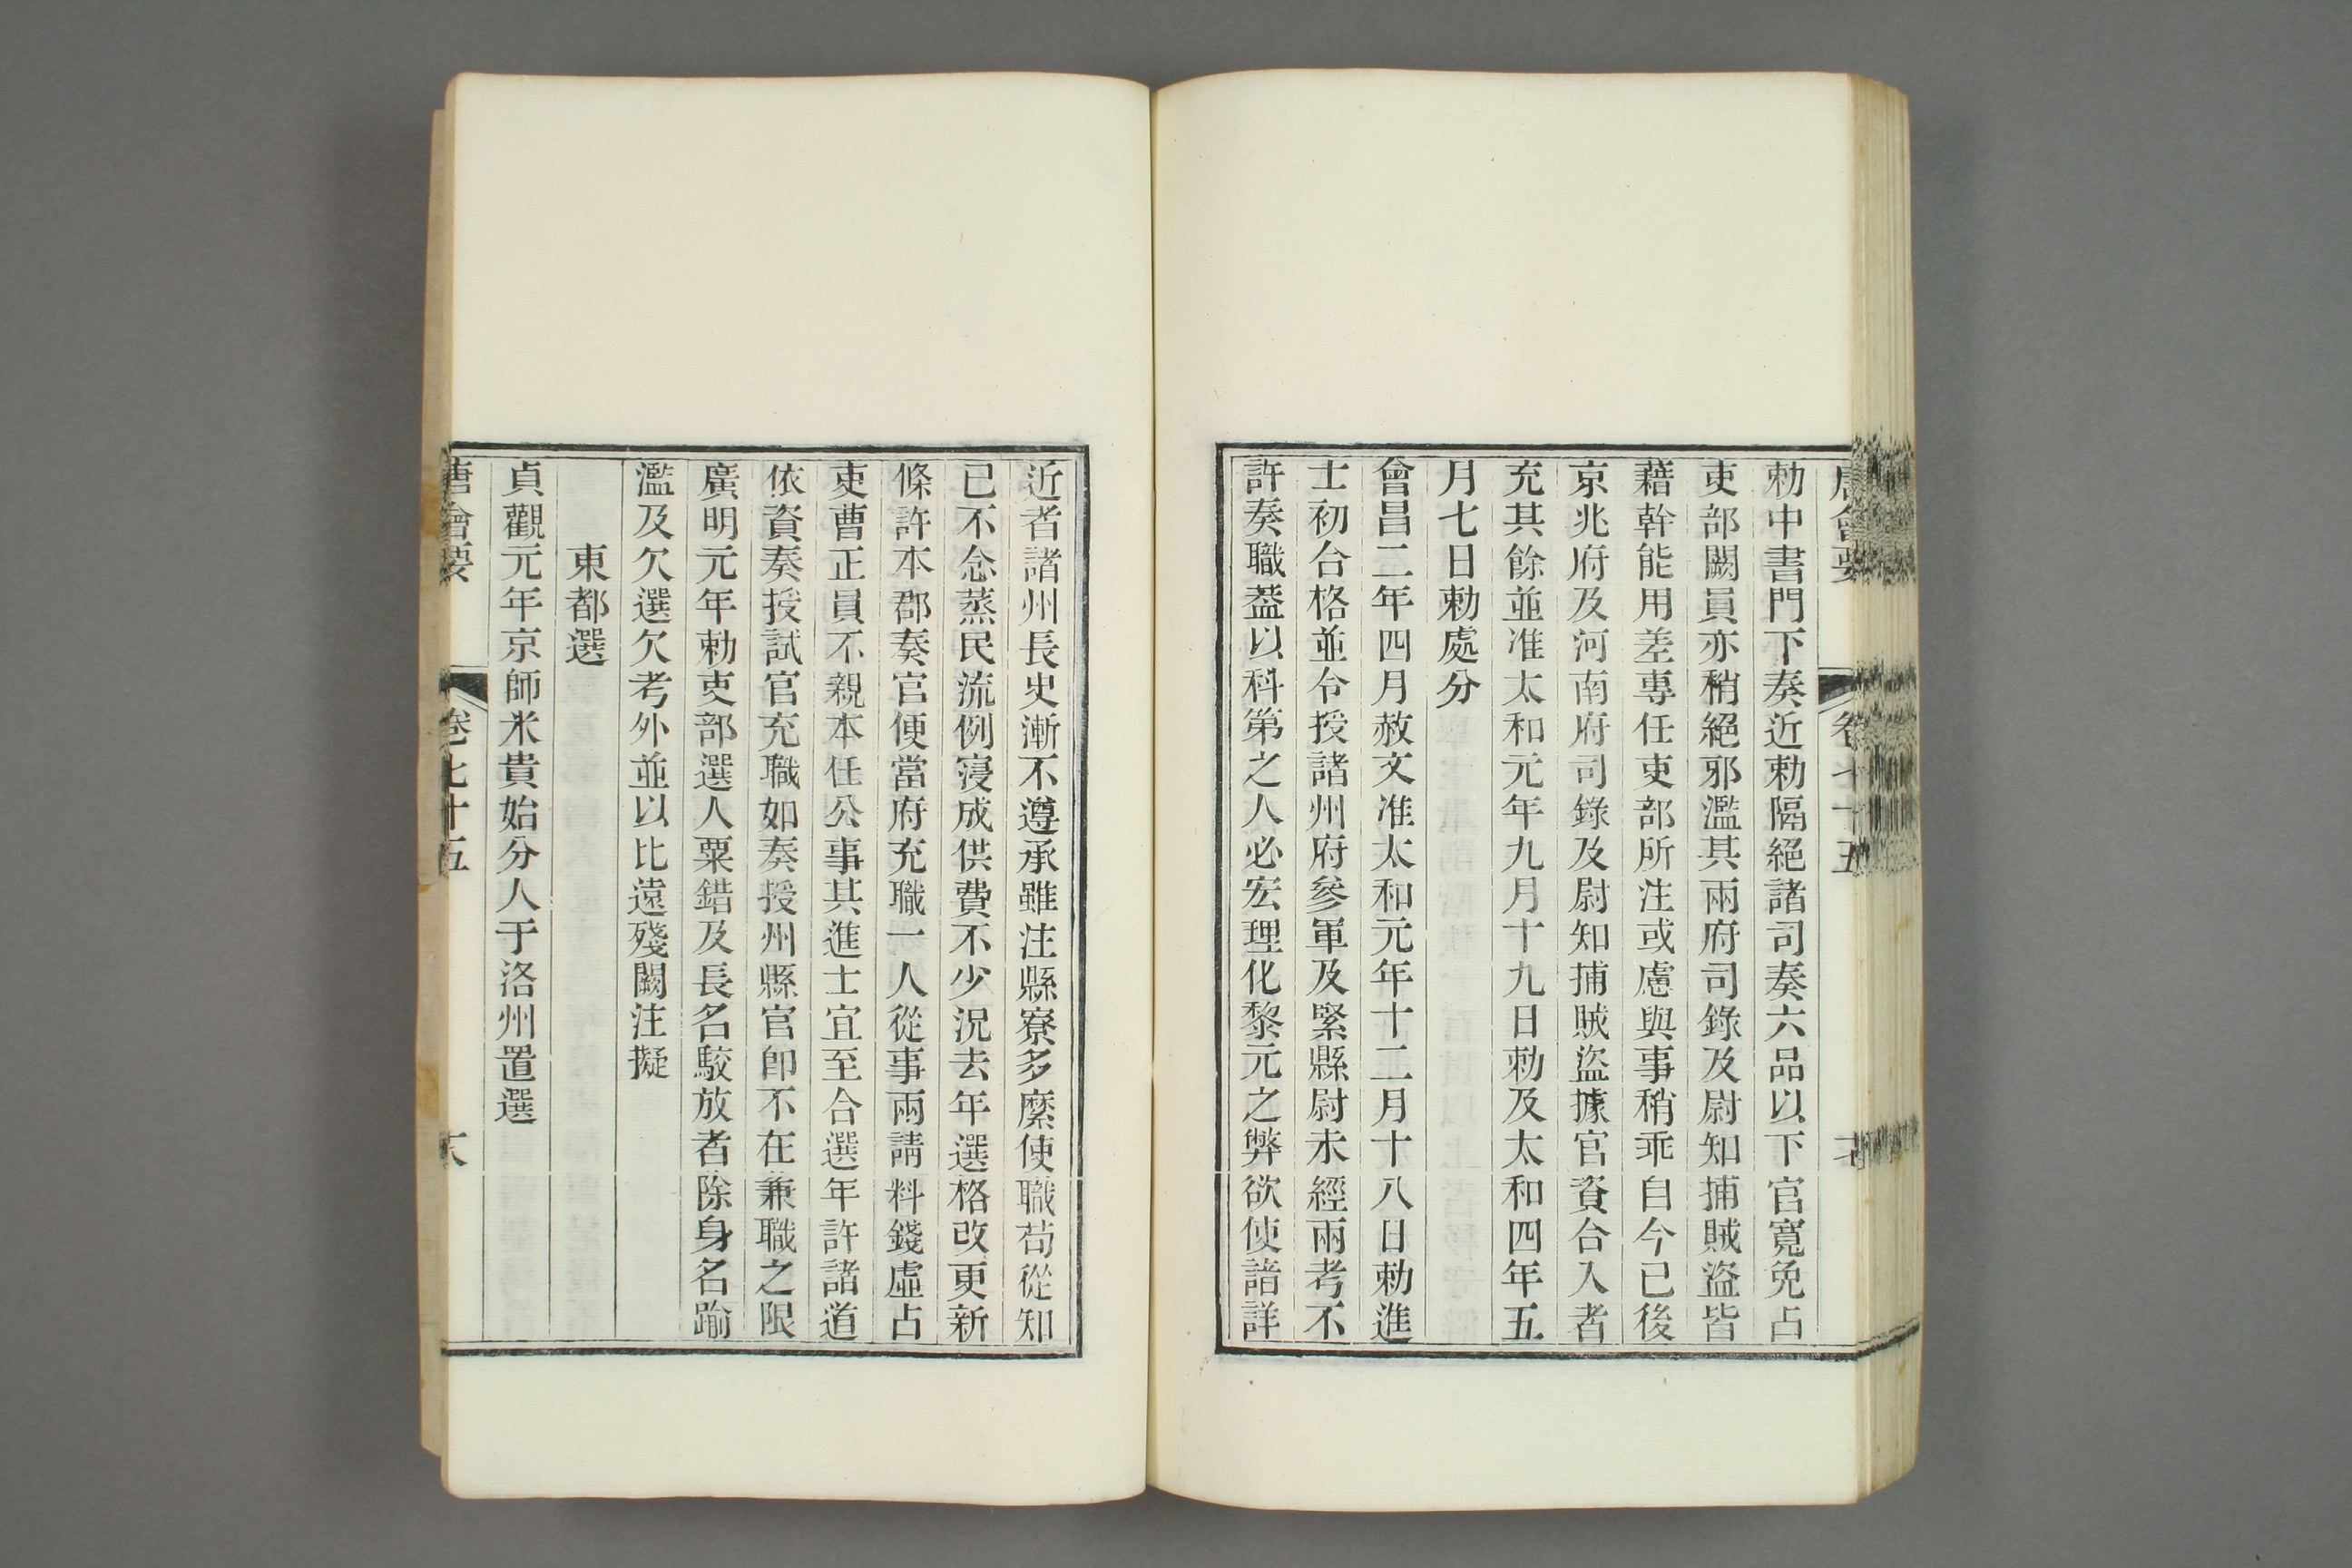 唐會要 卷七十五
勅中書門下奏近勅隔絕諸司奏六品以下官寬免占
吏部闕員亦稍絕邪濫其兩府司錄及尉知捕賊盜皆
藉幹能用差專任吏部所注或慮與事稍乖自今已後
京兆府及河南府司錄及尉知捕賊盜據官資合入者
充其餘並准太和元年九月十九日勅及太和四年五
月七日勅處分
會昌二年四月赦文准太和元年十二月十八日勅進
士初合格並令授諸州府參軍及緊縣尉未經兩考不
許奏職蓋以科第之人必宏理化黎元之弊欲使諳詳
近者諸州長史漸不遵承雖注縣寮多縻使職苟從知
已不念蒸民流例寖成供費不少況去年選格改更新
條許本郡奏官便當府充職一人從事兩請料錢虛占
吏曹正員不親本任公事其進士宜至合選年許諸道
依資奏授試官充職如奏授州縣官卽不在兼職之限
廣明元年勅吏部選人粟錯及長名駮放者除身名踰
濫及欠選欠考外並以比遠殘闕注擬
東都選
貞觀元年京師米貴始分人于洛州置選
唐會要 卷七十五